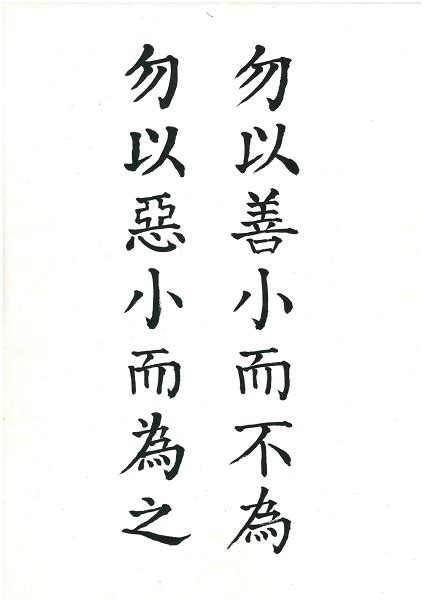 勿以善小而不為
勿以惡小而為之